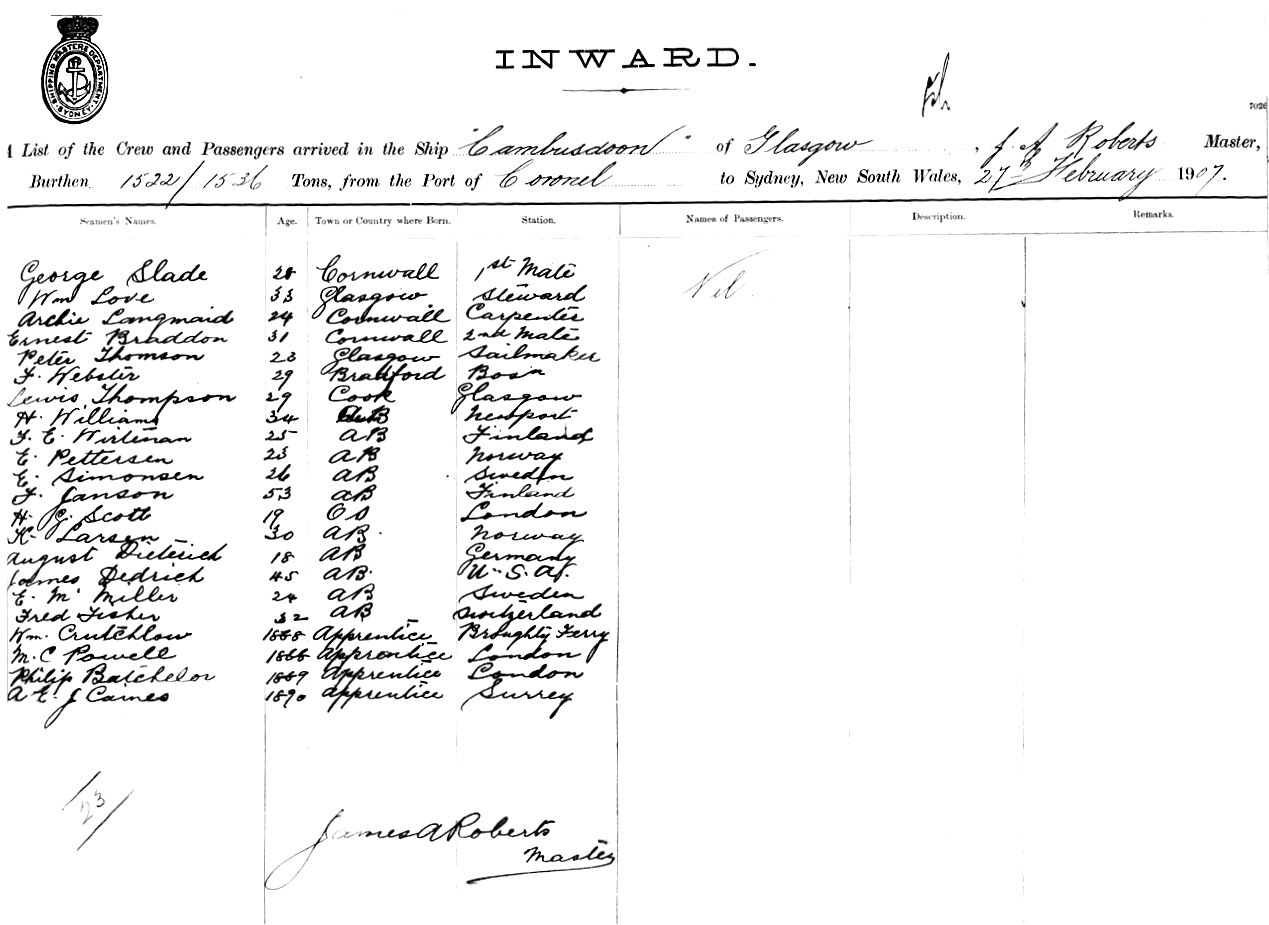 SHIPPING MASTERS DEPARTMENT. SYDNEY.
INWARD.
7026
List of the Crew and Passengers arrived in the Ship "Cambusdoon" of Glasgow, J A Roberts Master,
Burthen 1522/1536 Tons, from the Port of Coronel to Sydney, New South Wales, 27th February 1907.
Seamen's Names. Age. Town or Country where Born. Station. Names of Passengers. Description. Remarks.
George Slade 28 Cornwall 1st Mate Nil
Wm Love 33 Glasgow Steward
Archie Langmaid 24 Cornwall Carpenter
Ernest Braddon 31 Cornwall 2nd Mate
Peter Thomson 23 Glasgow Sailmaker
F. Webster 29 Bradford Bosn
Lewis Thompson 29 Cook Glasgow
H. Williams 34 AB Newport
F. E. Wirtenan 25 AB Finland
E. Pettersen 23 AB Norway
E. Simonsen 26 AB Sweden
F. Janson 53 AB Finland
H. G. Scott 19 OS London
K. Larsen 30 AB Norway
August Dieterich 18 AB Germany
James Dedrich 45 AB U.S.A.
E. Mc Miller 24 AB Sweden
Fred Fisher 32 AB Switzerland
Wm. Crutchlow 1888 Apprentice Broughty Ferry
M. C Powell 1888 Apprentice London
Philip Batchelor 1889 Apprentice London
A E. J Caines 1890 Apprentice Surrey
/23/
James A Roberts
Master